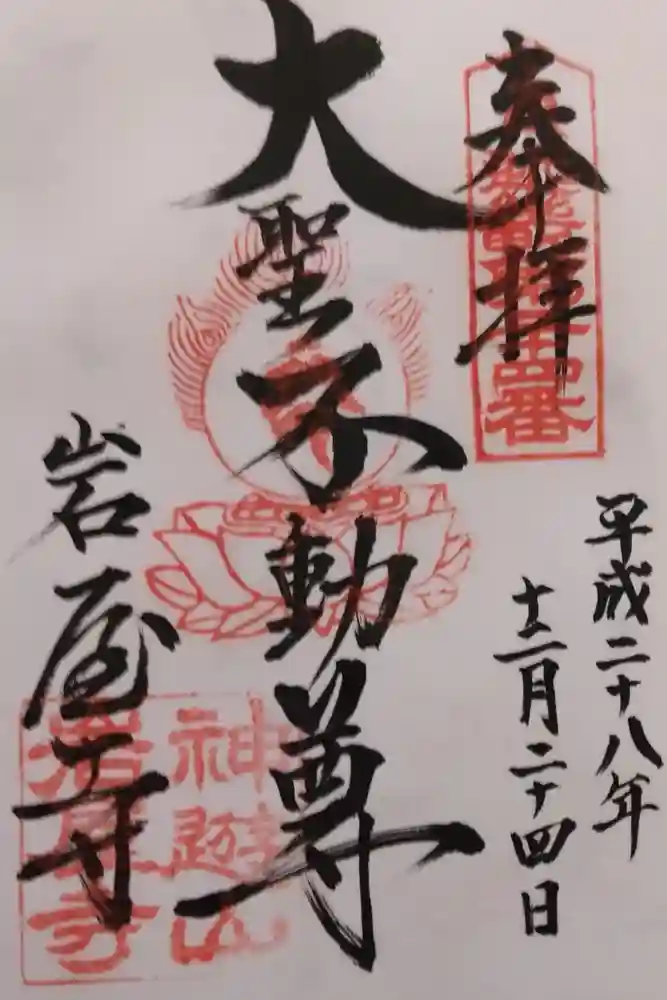 奉拝
四番
平成二十八年
十二月二十四日
大聖不動尊
岩屋寺
神遊山
岩屋寺